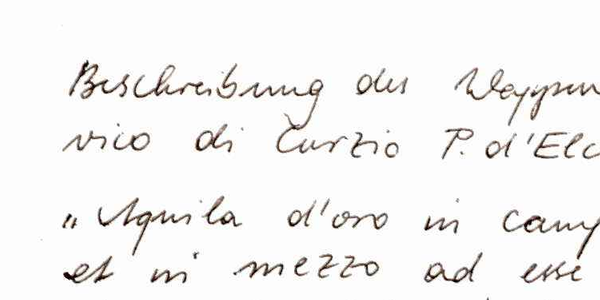 Beschreibung des Wappen
vico di Curzio P. d'Elc
„Aquila d'oro in camp
et in mezzo ad esse